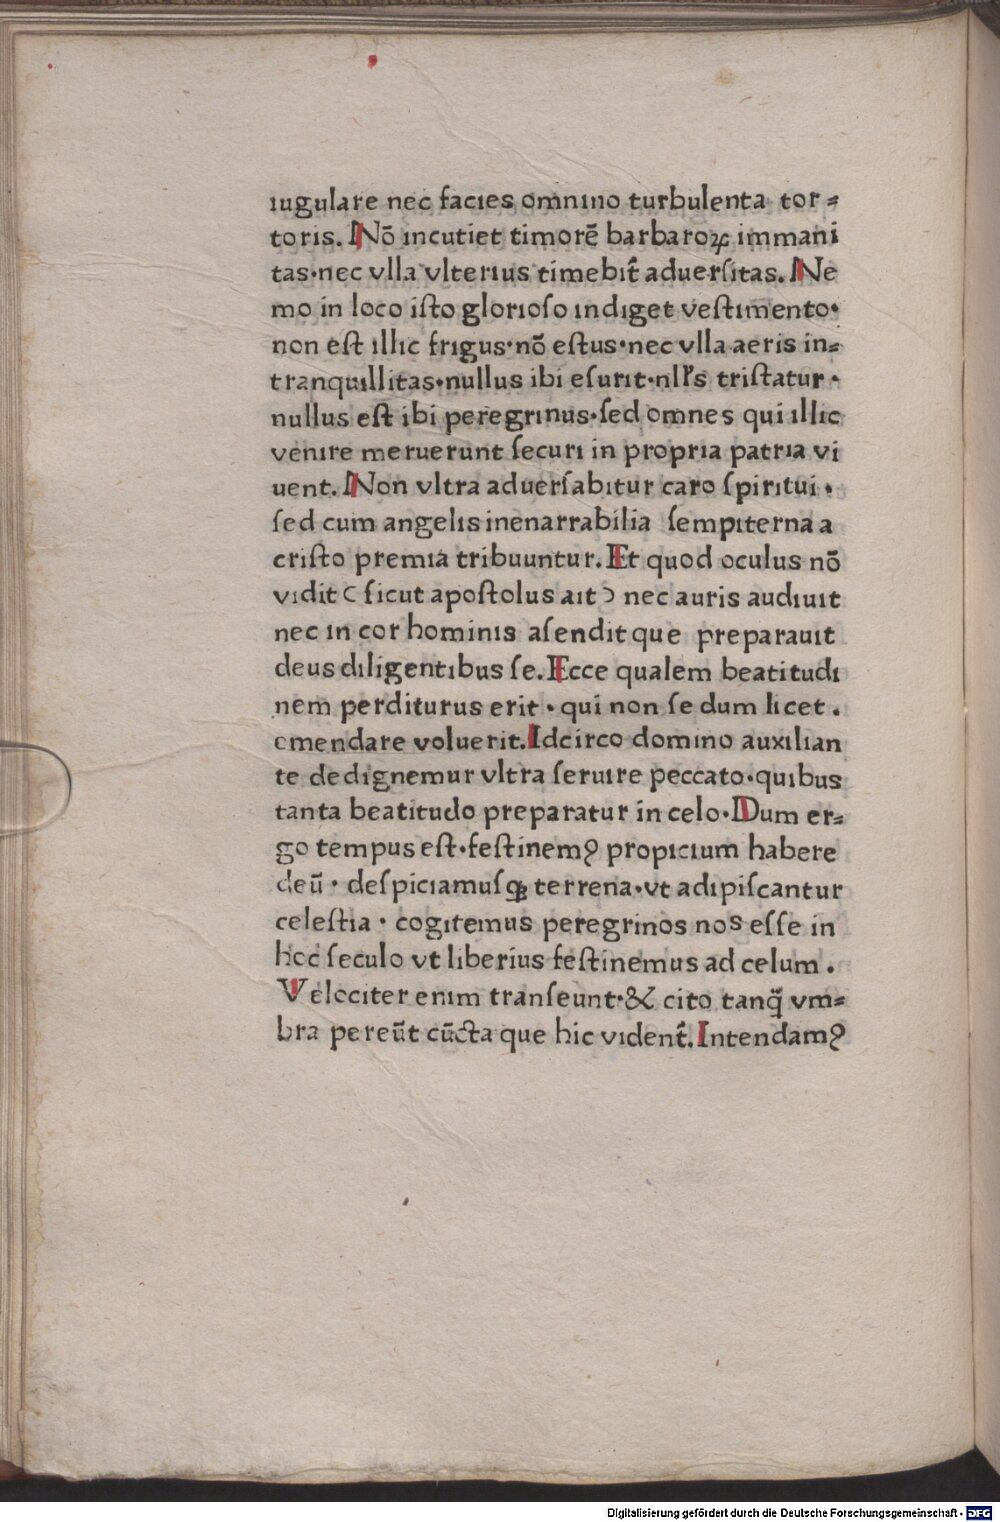 iugulare nec facies omnino turbulenta tor⸗
toris. Nō incutiet timorē barbaroꝝ immani
tas·nec vlla vlterius timebit᷑ aduerſitas. Ne
mo in loco iſto glorioſo indiget veſtimento·
non eſt illic frigus·nō eſtus·nec vlla aeris in⸗
tranquillitas·nullus ibi eſurit·nll's triſtatur·
nullus eſt ibi peregrinus·ſed omnes qui illic
venire meruerunt ſecuri in propria patria vi
uent. Non vltra aduerſabitur caro ſpiritui·
ſed cum angelis inenarrabilia ſempiterna a
criſto premia tribuuntur. Et quod oculus nō
vidit ( ſicut apoſtolus ait ) nec auris audiuit
nec in cor hominis aſendit que preparauit
deus diligentibus ſe. Ecce qualem beatitudi
nem perditurus erit · qui non ſe dum licet .
emendare voluerit. Idcirco domino auxilian
te dedignemur vltra ſeruire peccato·quibus
tanta beatitudo preparatur in celo·Dum er⸗
go tempus eſt·feſtinemꝰ propicium habere
deū · deſpiciamuſqꝫ terrena·vt adipiſcantur
celeſtia · cogitemus peregrinos nos eſſe in
hoc ſeculo vt liberius feſtinemus ad celum .
Velociter enim tranſeunt·& cito tanq̃ vm⸗
bra pereūt cūcta que hic vident᷑. Intendamꝰ
Digitalisierung gefördert durch die Deutsche Forschungsgemeinschaft - DFG